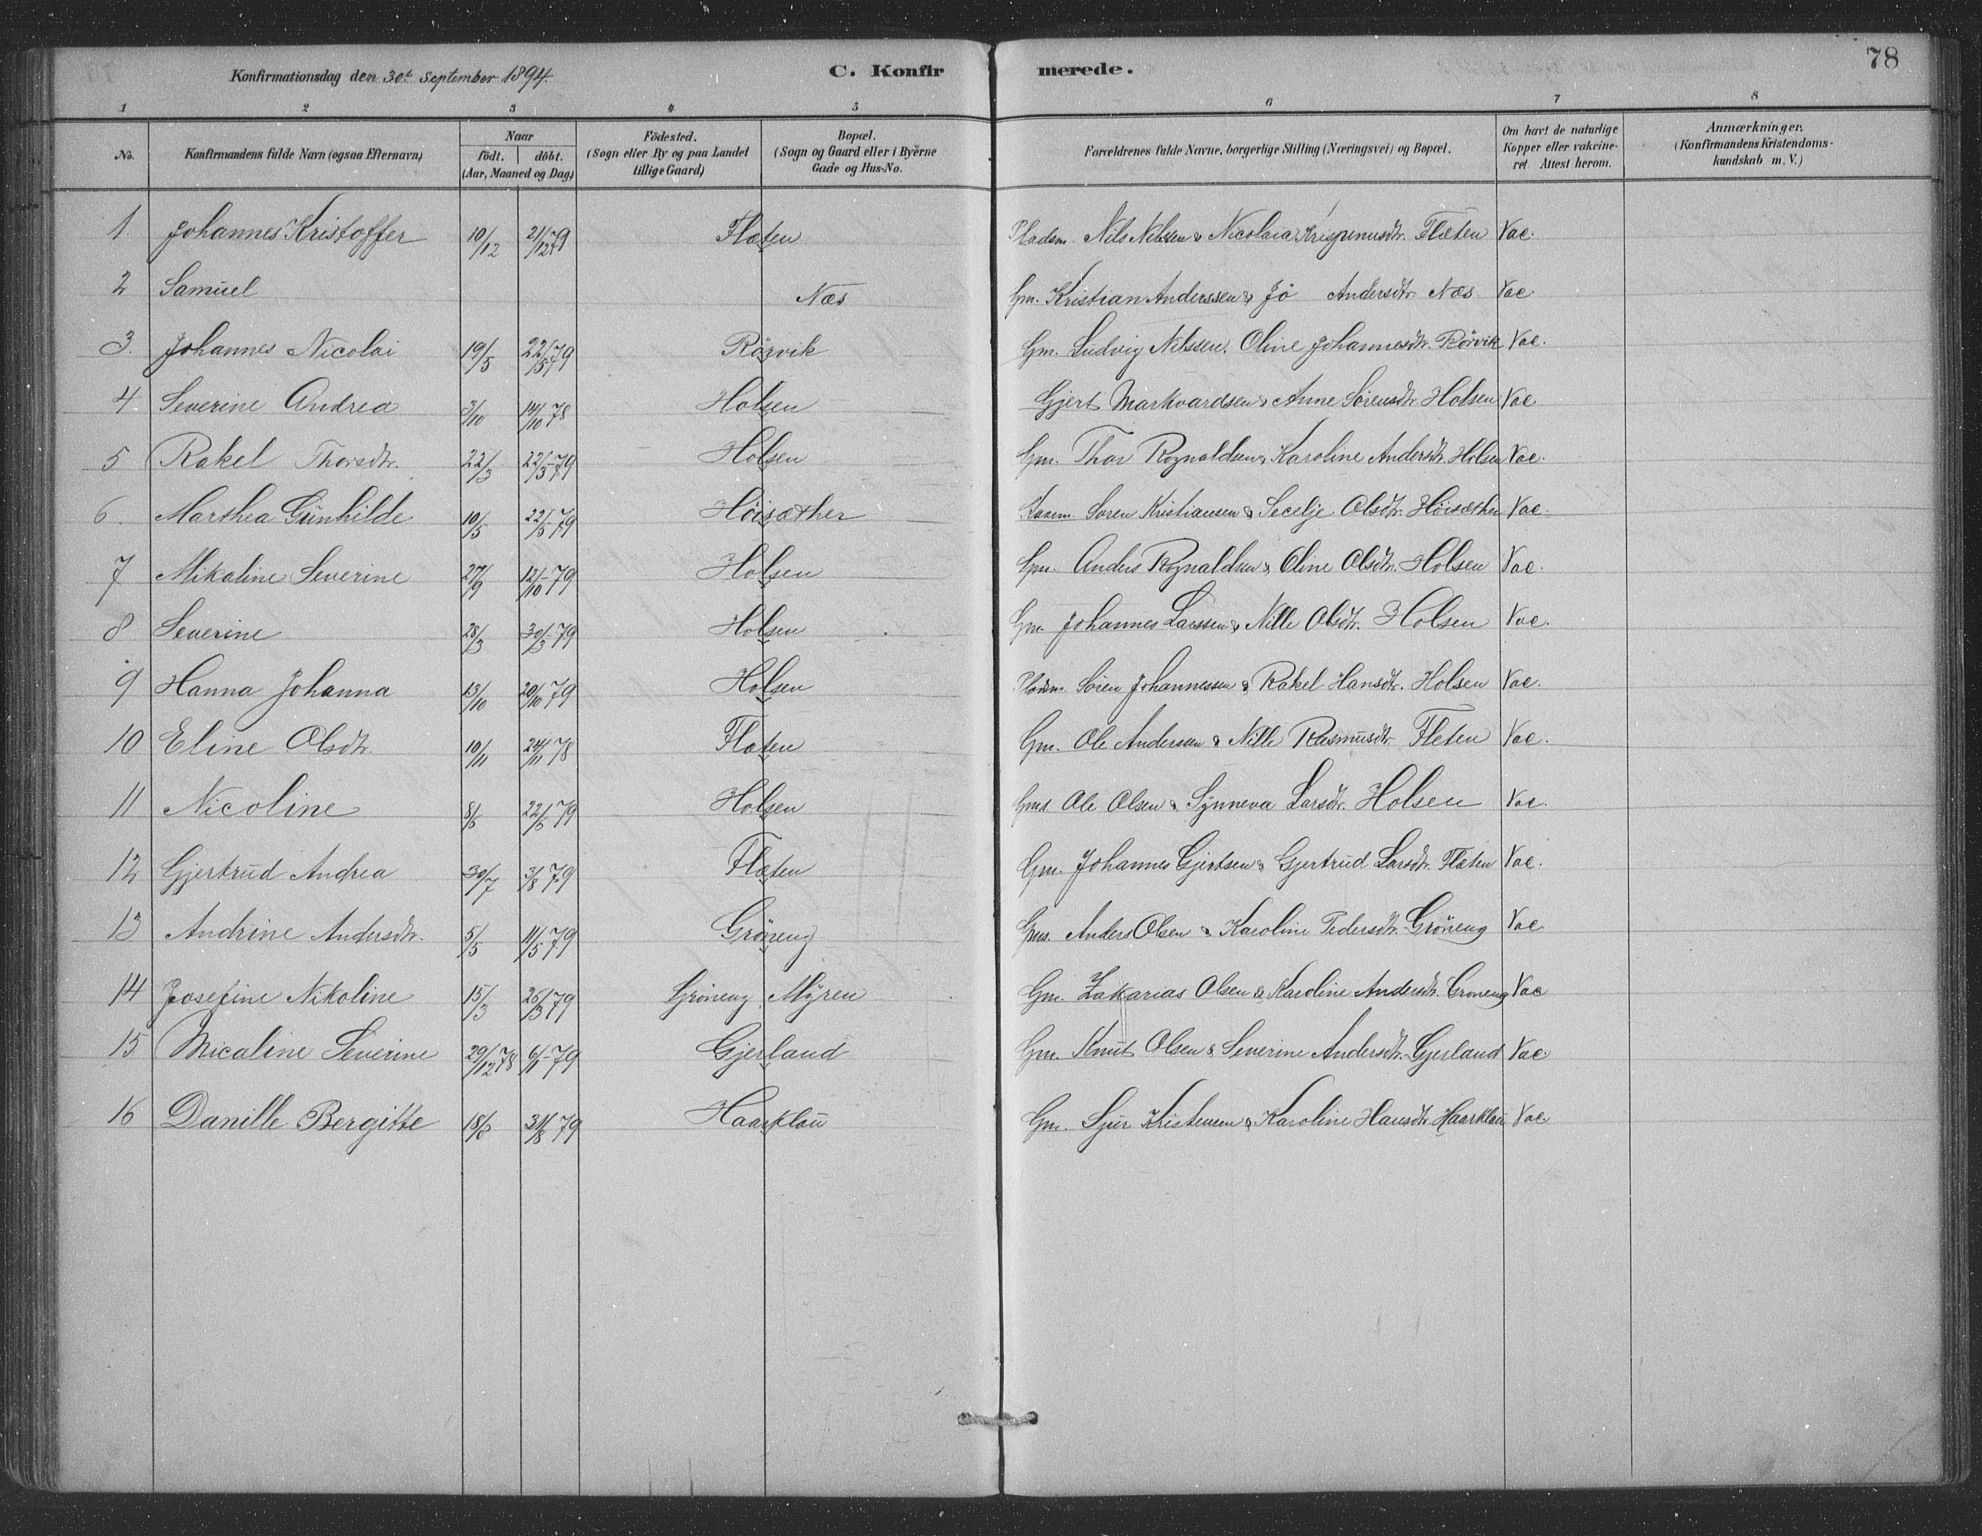 78
Konfirmationsdag den 30te September 1894.
C. Konfirmerede.
1 2 3 4 5 6 7 8
No. | Konfirmandens fulde Navn (ogsaa Efternavn) | Naar födt. döbt. (Aar, Maaned og Dag) | Födested. (Sogn eller By og paa Landet tillige Gaard) | Bopæl. (Sogn og Gaard eller i Byerne Gade og Hus-No. | Forældrenes fulde Navne, borgerlige Stilling (Næringsvei) og Bopæl. | Om havt de naturlige Kopper eller vakcineret Attest herom. | Anmærkninger. (Konfirmandens Kristendomskundskab m. V.)
1 Johannes Kristoffer 10/12 21/12 79 Flæten Pladsm. Nils Nilssen & Nicolaia Krispinusdtr. Flæten Vac.
2 Samuel Næs Gm. Kristian Anderssen & Jo Andersdtr. Næs Vac.
3. Johannes Nicolai 19/5 22/5 79 Rörvik Gm. Ludvig Nilssen. Oline Johannesdtr. Rörvik Vac.
4 Severine Andrea 3/10 14/10 78 Holsen Gjert Markvardsen & Anne Sörensdtr. Holsen Vac
5 Rakel Thorsdtr. 22/3 22/3 79 Holsen Gm. Thor Rognaldsen & Karoline Andersdtr. Holsen Vac.
6. Marthea Gunhilde 10/5 22/5 79 Höisæther Sören Kristiansen & Secelje Olsdtr. Höisæther Vac.
7 Mikaline Severine 27/9 12/10 79 Holsen Gm. Anders Rognaldsen & Oline Olsdtr. Holsen Vac.
8 Severine 28/3 30/3 79 Holsen Gm. Johannes Larssen & Nille Olsdtr. Holsen Vac.
9 Hanna Johanna 13/10 20/10 79 Holsen Pladsm. Sören Johannessen & Rakel Hansdtr. Holsen Vac.
10 Eline Olsdtr. 10/11 24/11 78 Flæten Gm. Ole Andersen & Nille Rasmusdtr. Fleten Vac.
11 Nicoline 8/6 22/6 79 Holsen Gms. Ole Olsen & Synneva Larsdtr. Holsen Vac.
12 Gjertrud Andrea 30/7 3/8 79 Flæten Gm. Johannes Gjertsen & Gjertrud Larsdtr. Flæten Vac.
13 Andrine Andersdtr. 5/5 11/5 79 Gröneng Gms. Anders Olsen & Karoline Pedersdtr. Gröneng Vac
14 Josefine Nikoline 15/3 26/3 79 Gröneng Myren Gm. Zakarias Olsen & Karoline Andersdtr. Groneng Vac
15 Micaline Severine 29/12 78 6/1 79 Gjerland Gm. Knut Olsen & Severine Andersdtr. Gjerland Vac
16 Danille Bergitte 18/8 31/8 79 Haarklau Gm. Sjur Kristensen & Karoline Hansdtr. Haarklau Vac